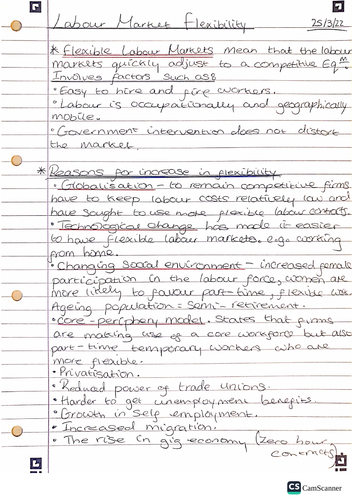 Labour Market Flexibility
25/3/22
* Flexible Labour Markets mean that the labour
markets quickly adjust to a competitive Eqm.
Involves factors such as:
• Easy to hire and fire workers.
• Labour is occupationally and geographically
mobile.
• Government intervention does not distort
the market.
* Reasons for increase in flexibility
• Globalisation - to remain competitive firms
have to keep labour costs relatively low and
have sought to use more flexible labour contracts.
• Technological change has made it easier
to have flexible labour markets. e.g. working
from home.
• Changing social environment - increased female
participation in the labour force, women are
more likely to favour part-time, flexible work.
Ageing population = semi-retirement.
• core-periphery model. States that firms
are making use of a core workforce but also
part-time temporary workers who are
more flexible.
• Privatisation.
• Reduced power of trade unions.
• Harder to get unemployment benefits.
• Growth in self employment.
• Increased migration.
• The rise in gig economy (zero hour
contracts)
CS CamScanner